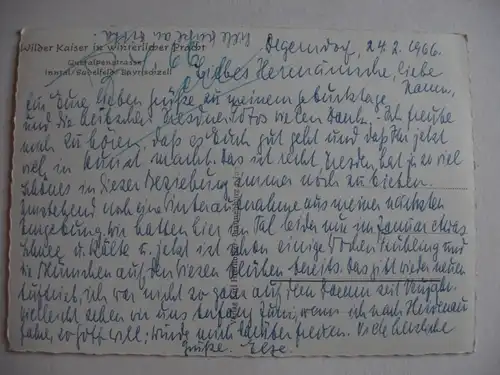 Viele Grüße an
Wilder Kaiser in winterlicher Pracht
Queralpenstrasse
Inntal/Sudelfeld/Bayrischzell
Degerndorf, 24.2.1966.
Liebes Hermännsche, liebe
für Eure lieben Grüße zu meinem Geburtstage
und die hübschen Dresdner Fotos vielen Dank. Ich freute
mich zu hören, daß es Euch gut geht und daß Ihr jetzt
viel in Kunst macht. Das ist recht. Dresden hat ja so viel
Schönes in dieser Beziehung immer noch zu bieten.
Umstehend noch eine Winteraufnahme aus meiner nächsten
Umgebung, wir hatten hier im Tal leider nur im Januar etwas
Schnee u. Kälte u. jetzt ist schon einige Wochen Frühling und
die Blümchen auf den Wiesen blühen bereits. Das gibt wieder neuen
Auftrieb, ich war nicht so ganz auf dem Damm seit Neujahr.
Vielleicht sehen wir uns Anfang Juni, wenn ich nach
fahre, so Gott will; würde mich darüber freuen. Viele herzliche
Grüße. Else.